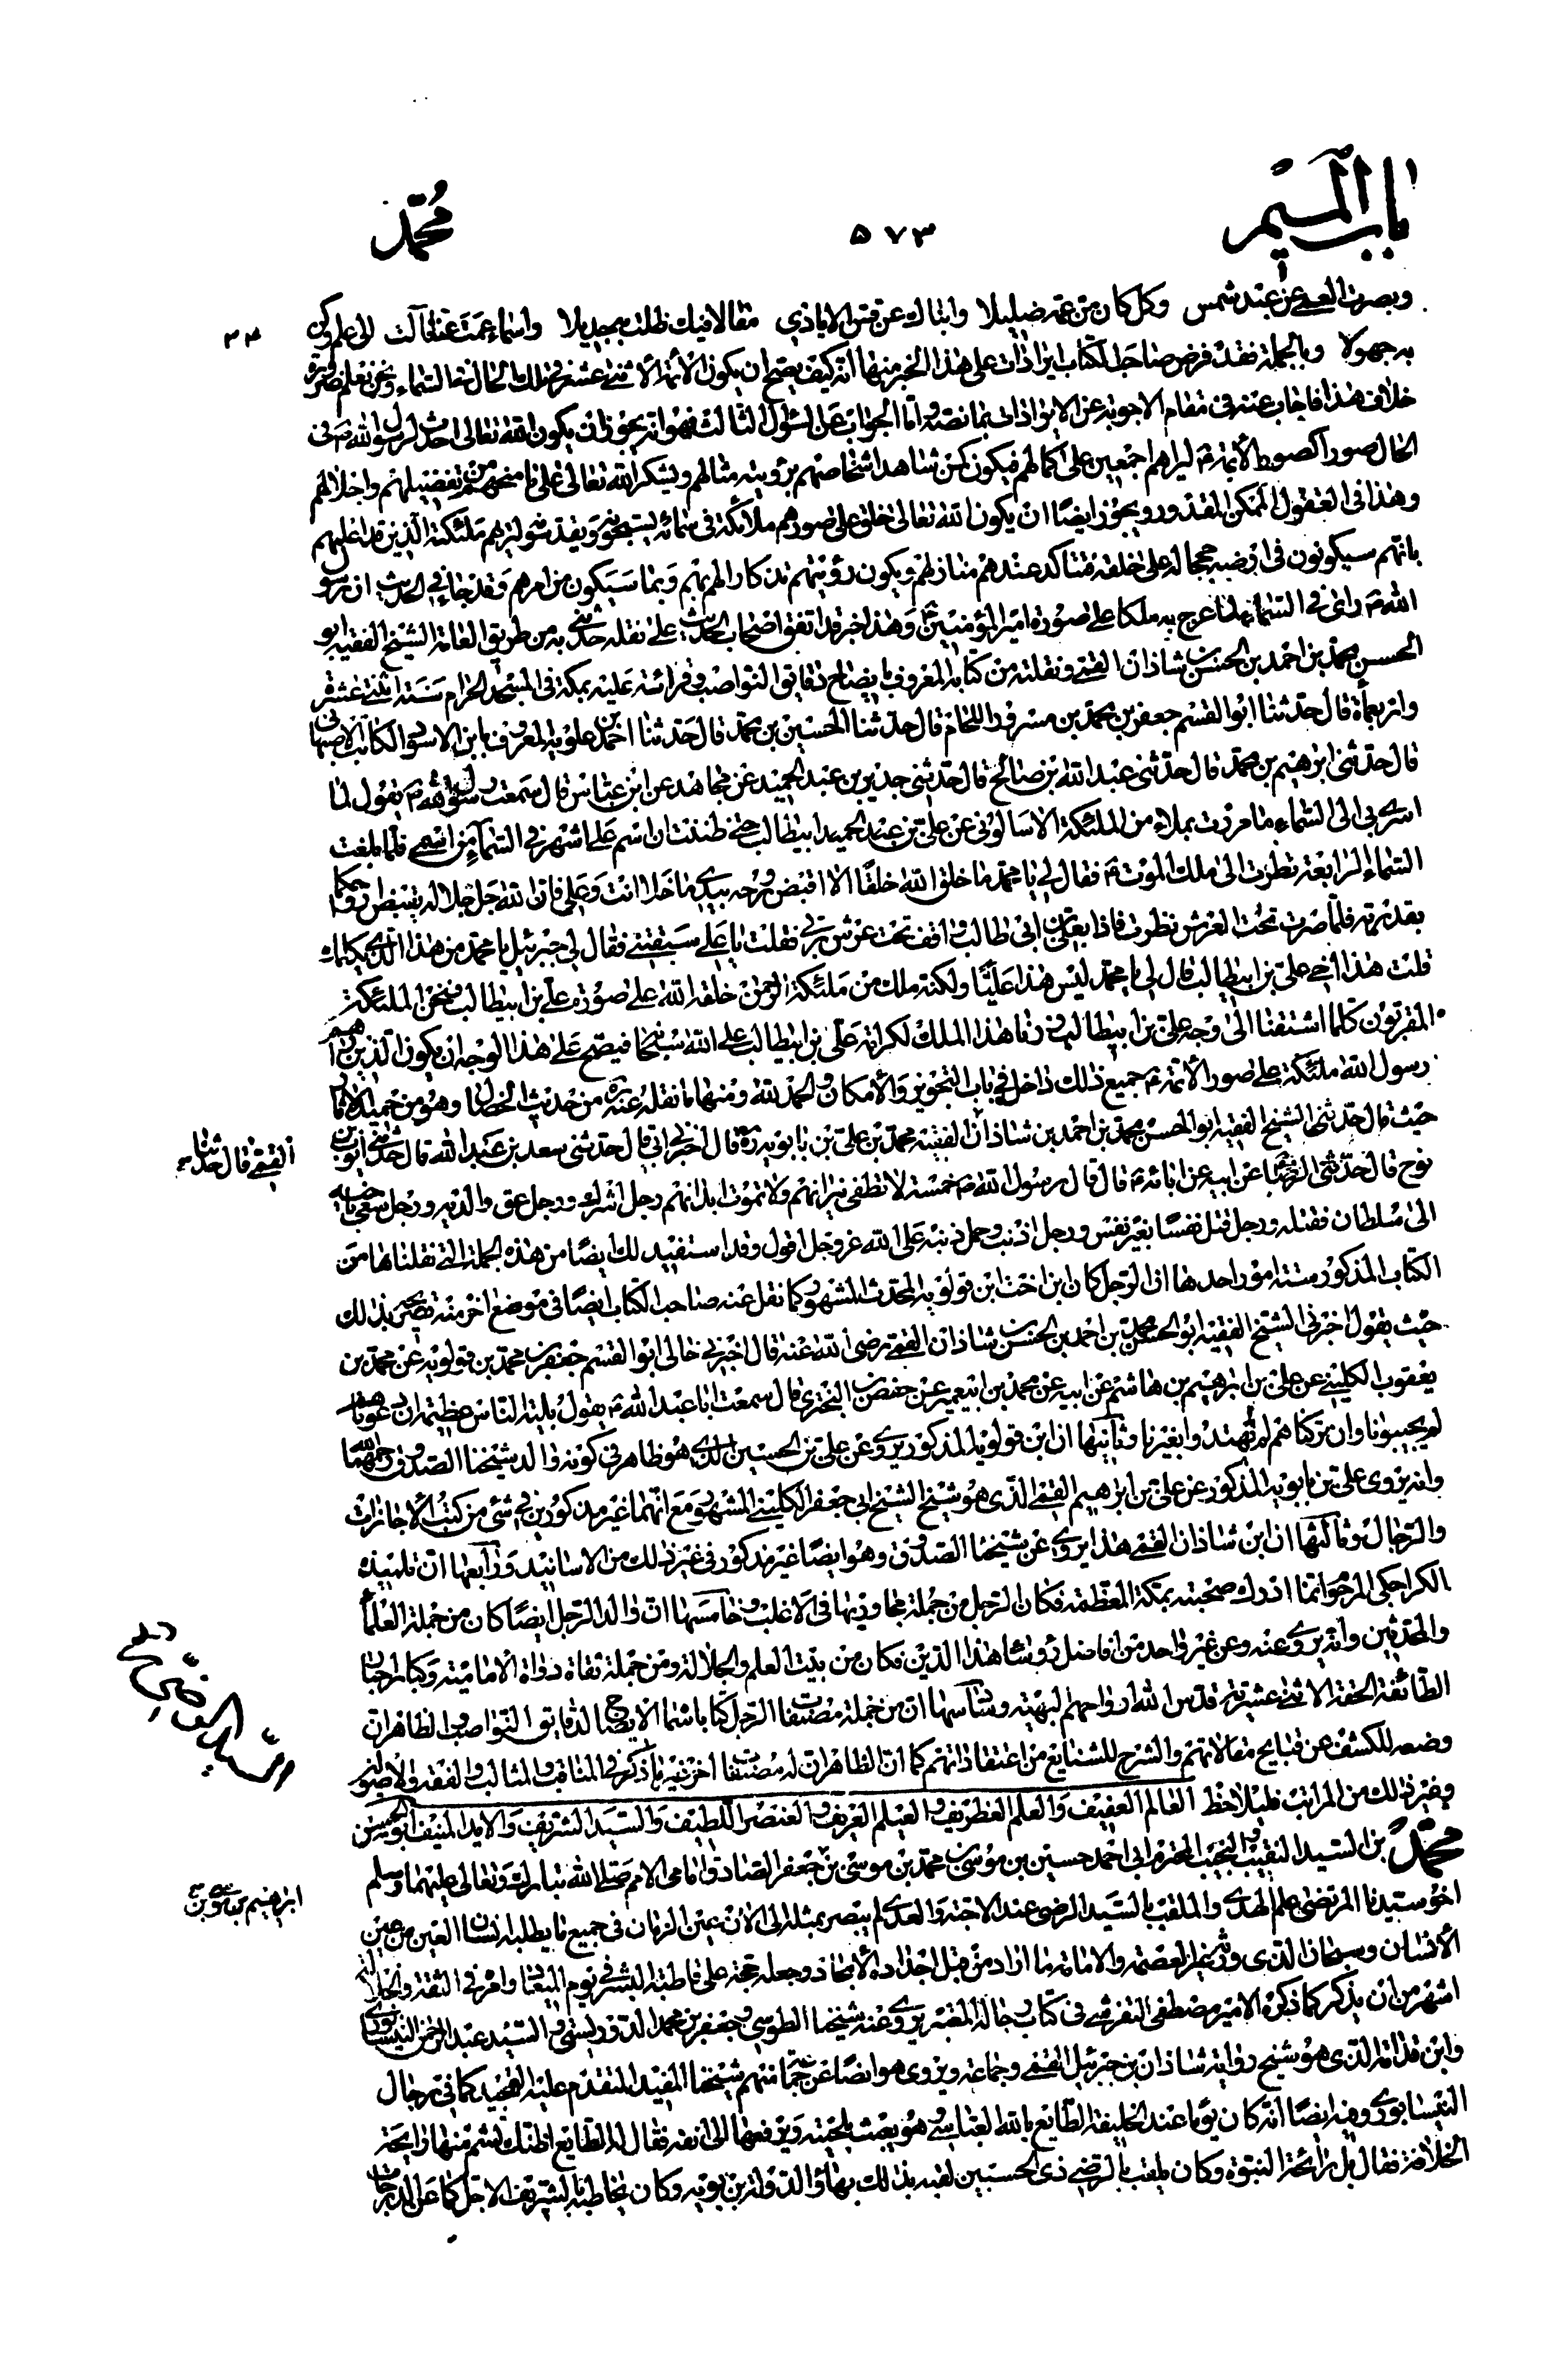 باب الميم
۵۷۳
محمّد
وبصرت العمى عن عبد شمس وكل كان من عمه ضليلا وانباك عن قس الايادي مقالا فيك ظلت به جديلا واسماء عمت عنا فآلت الى علم وكن
به جهولا وبالجملة فقد فرض صاحب الكتاب ايرادات على هذا الخبر منها انه كيف يصح ان يكون الأئمة الأثنى عشر في تلك الحال في السماء ونحن نعلم ضرورة
خلاف هذا فاجاب عنه في مقام الاجوبة عن الايرادات بما نصّه وامّا الجواب عن السّؤال الثالث فهو انه يجوز ان يكون الله تعالى احدث لرسول الله ص في
الحال صورا كصور الأئمة ع ليراهم اجمعين على كمالهم فيكون كمن شاهد اشخاصهم برؤيته مثالهم ويشكر الله تعالى على ما منحه من تفضيلهم واجلالهم
وهذا في العقول الممكن المقدور ويجوز ايضا ان يكون الله تعالى خلق على صورهم ملائكة في سمائه يسبحونه ويقدسونه لتراهم ملئكته الّذين قد اعلمهم
بانهم سيكونون في ارضه حججا له على خلقه فتتاكد عندهم منازلهم ويكون رؤيتهم تذكارا لهم بهم وبما سيكون من امرهم وقد جاء في الحديث ان رسول
الله ص راى في السماء لما عرج به ملكا على صورة امير المؤمنين ع وهذا خبر قد اتفق اصحاب الحديث على نقله حدثني به من طريق العامة الشيخ الفقيه ابو
الحسن محمد بن احمد بن الحسن بن شاذان القمي ونقلته من كتابه المعروف بايضاح دقايق النواصب وقرائته عليه بمكة في المسجد الحرام سنة اثنتي عشرة
واربعمأة قال حدثنا ابو القسم جعفر بن محمد بن مسرور اللحام قال حدثنا الحسين بن محمد قال حدثنا احمد بن علويه المعروف بابن الاسود الكاتب الاصبهاني
قال حدثني ابرهيم بن محمد قال حدثني عبد الله بن صالح قال حدثني جدير بن عبد الحميد عن مجاهد عن ابن عباس قال سمعت رسول الله ص يقول لما
اسرى بي الى السماء ما مررت بملاء من الملئكة الا سالوني عن علي بن عبد الحميد ابيطالب حتى ظننت ان اسم علي اشهر في السماء من اسمي فلما بلغت
السماء الرابعة نظرت الى ملك الموت ع فقال لي يا محمد ما خلق الله خلقا الا اقبض روحه بيدي ما خلا انت وعلي فان الله جل جلاله يقبض روحكما
بقدرته فلما صرت تحت العرش نظرت فاذا بعلي بن ابي طالب واقف تحت عرش ربي فقلت يا علي سبقتني فقال لي جبرئيل يا محمد من هذا الذي يكلمك
قلت هذا اخي علي بن ابيطالب قال لي يا محمد ليس هذا عليّا ولكنه ملك من ملئكة الرحمن خلقه الله على صورة علي بن ابيطالب فنحن الملئكة
المقربون كلما اشتقنا الى وجه علي بن ابيطالب زرنا هذا الملك لكرامة علي بن ابيطالب على الله سبحانه فيصح على هذا الوجه ان يكون الذين راهم
رسول الله ملئكة على صور الأئمة ع جميع ذلك داخل في باب التجويز والأمكان والحمد لله ومنها ما نقله عنه ره من حديث الخصال وهو من حميد الآثار
حيث قال حدثني الشيخ الفقيه ابو الحسن محمد بن احمد بن شاذان الفقيه محمد بن علي بن بابويه ره قال اخبرني ابي قال حدثني سعد بن عبد الله قال حدثني ايوب بن
القمي قال حدثنا
نوح قال حدثني الرضا ع عن ابيه عن ابائه ع قال قال رسول الله ص خمسة لا تطفى نيرانهم ولا تموت ابدانهم رجل اشرك ورجل عق والديه ورجل سعى باخيه
الى سلطان فقتله ورجل قتل نفسا بغير نفس ورجل اذنب وحمل ذنبه على الله عز وجل اقول وقد استفيد لك ايضا من هذه الجملة التي نقلناها من
الكتاب المذكور ستة امور احدها ان الرجل كان ابن اخت ابن قولويه المحدث المشهور كما نقل عنه صاحب الكتاب ايضا في موضع اخر منه تصريحه بذلك
حيث يقول اخبرني الشيخ الفقيه ابو الحسن محمد بن احمد بن الحسن بن شاذان القمي رضي الله عنه قال اخبرني خالي ابو القسم جعفر بن محمد بن قولويه عن محمد بن
يعقوب الكليني عن علي بن ابرهيم بن هاشم عن ابيه عن محمد بن ابي عمير عن حفص بن البختري قال سمعت ابا عبد الله ع يقول بلية الناس عظيمة ان دعوناهم
لم يجيبونا وان تركناهم لم يهتدوا بغيرنا وثانيها ان ابن قولويه المذكور يروى عن علي بن الحسين الذي هو ظاهر في كونه والد شيخنا الصدوق رحمهما الله
وانه يروى علي بن بابويه المذكور عن علي بن ابرهيم القمي الذي هو شيخ الشيخ ابي جعفر الكليني المشهور مع انهما غير مذكورين في شئ من كتب الأجازات
والرجال وثالثها ان ابن شاذان القمي هذا يروى عن شيخنا الصدوق وهو ايضا غير مذكور في غير ذلك من الاسانيد ورابعها ان تلميذه
الكراجكي المرحوم انما ادرك صحبته بمكة المعظمة فكان الرجل من جملة مجاوريها في الاغلب وخامسها ان والد الرجل ايضا كان من جملة العلماء
والمحدثين وانه يروى عنه وعن غير واحد من افاضل رؤسا هذا الدين فكان من بيت العلم والجلالة ومن جملة ثقاة رواة الامامية وكبار اجناب
الطائفة الحقة الاثنى عشرية قدس الله ارواحهم البهية وسادسها ان من جملة مصنفات الرجل كتابا سماه الايضاح لدقايق النواصب والظاهر انه
وضعه للكشف عن قبايح مقالاتهم والشرح للشنايع من اعتقاداتهم كما ان الظاهر ان له مصنفات اخر غير ما ذكر في المناقب والمثالب والفقه والاصول
وغير ذلك من المراتب فليلاحظ العالم العفيف والعلم الغطريف والعيلم الغريف والعنصر اللطيف والسيد الشريف والايد المنيف ابو الحسن
السيد الرضي رضي
محمد بن السيد النقيب والنجيب المحترم ابي احمد حسين بن موسى بن محمد بن موسى بن جعفر الصادق امامي الامم صلى الله تبارك وتعالى عليهما وسلم
ابرهيم بن موسى بن
اخو سيدنا المرتضى علم الهدى والملقب بالسيد الرضي عند الاحبة والعدى لم يبصر بمثله الى الآن عين الزمان في جميع ما يطلبه انسان العين من عين
الأنسان وسبحان الذي ورثه غير العصمة والامامة ما اراد من قبل اجداده الأمجاد وجعله حجة على قاطبة البشر في يوم الميعاد وامره في الثقة والجلالة
اشهر من ان يذكر كما ذكره الامير مصطفى التفرشي في كتاب رجاله المعتبر يروى عنه شيخنا الطوسي وجعفر بن محمد الدوريستي والسيد عبد الرحمن النيسابوري
وابن قدامة الذي هو شيخ رواية شاذان بن جبرئيل القمي وجماعة ويروى هو ايضا عن جماعة منهم شيخنا المفيد المتقدم عليه المجيد كما في رجال
النيسابوري وفيه ايضا انه كان يوما عند الخليفة الطايع بالله العباسي وهو يعبث بلحيته ويرفعها الى انفه فقال له الطايع اظنك تشم منها رايحة
الخلافة فقال بل رائحة النبوة وكان يلقب بالرضي ذي الحسبين لقبه بذلك بهاؤ الدولة بن بويه وكان يخاطبه بالشريف الاجل كما عن الدرجات